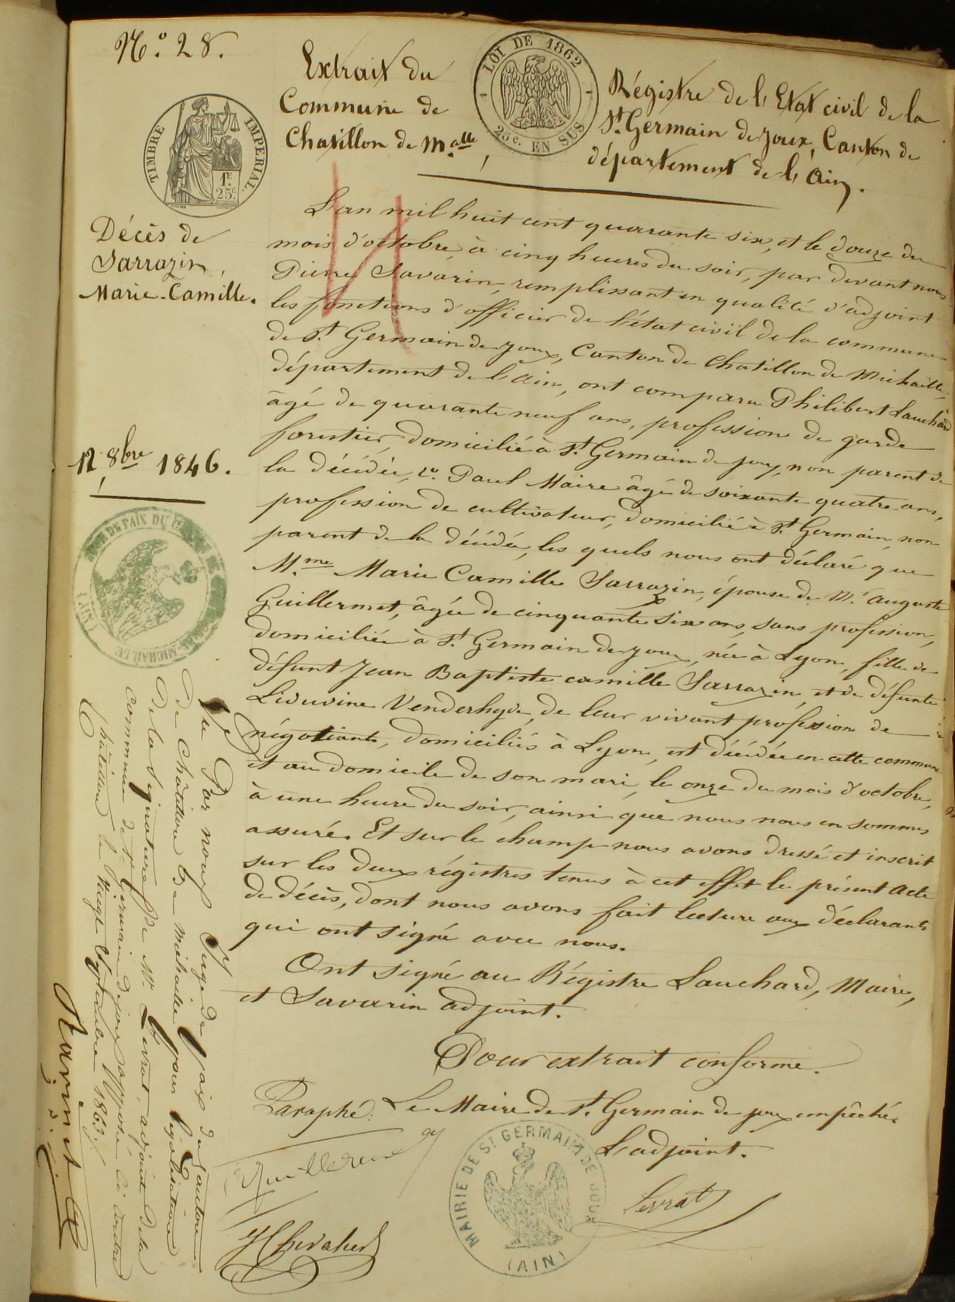 N.o 28.
Extrait du
Commune de
Chatillon de M.alle,
LOI DE 1862
25c. EN SUS
Régistre de l'Etat civil de la
St Germain de Joux, Canton de
département de l'Ain.
TIMBRE IMPERIAL
1F.
25c
Décès de
Sarrazin,
Marie-Camille.
12 8bre 1846.
L'an mil huit cent quarante six, et le douze du
mois d'octobre, à cinq heures du soir, par devant nous
Pierre Savarin, remplissant en qualité d'adjoint
les fonctions d'officier de l'état civil de la commune
de St Germain de Joux, Canton de Chatillon de Michaille,
département de l'Ain, ont comparu Philibert Lauchard
âgé de quarante neuf ans, profession de garde
forestier, domicilié à St Germain de Joux, non parent de
la décédée, et Paul Maire âgé de soixante quatre ans,
profession de cultivateur, domicilié à St Germain, non
parent de la décédée, les quels nous ont déclaré que
Mme Marie Camille Sarrazin, épouse de Mr Auguste
Guillermet, âgée de cinquante six ans, sans profession,
domiciliée à St Germain de Joux, née à Lyon, fille de
défunt Jean Baptiste camille Sarrazin, et de défunte
Liduvine Venderhyde, de leur vivant profession de
négotiants, domiciliés à Lyon, est décédée en cette commune
et au domicile de son mari, le onze du mois d'octobre,
à une heure du soir, ainsi que nous nous en sommes
assuré. Et sur le champ nous avons dressé et inscrit
sur les deux régistres tenus à cet effet le présent acte
de décès, dont nous avons fait lecture aux déclarants
qui ont signé avec nous.
Ont signé au Régistre Lauchard, Maire,
et Savarin adjoint.
Pour extrait conforme.
Paraphé. Le Maire de St Germain de Joux empêché.
L'adjoint.
Livrat
MAIRIE DE ST GERMAIN DE JOUX
(AIN)
H Chevalier
Vu Par nous Juge de paix du canton
de Châtillon de Michaille pour légalisation
de la signature de Mr Livrat, adjoint de la
commune de St Germain de joux apposée ci contre
Châtillon le